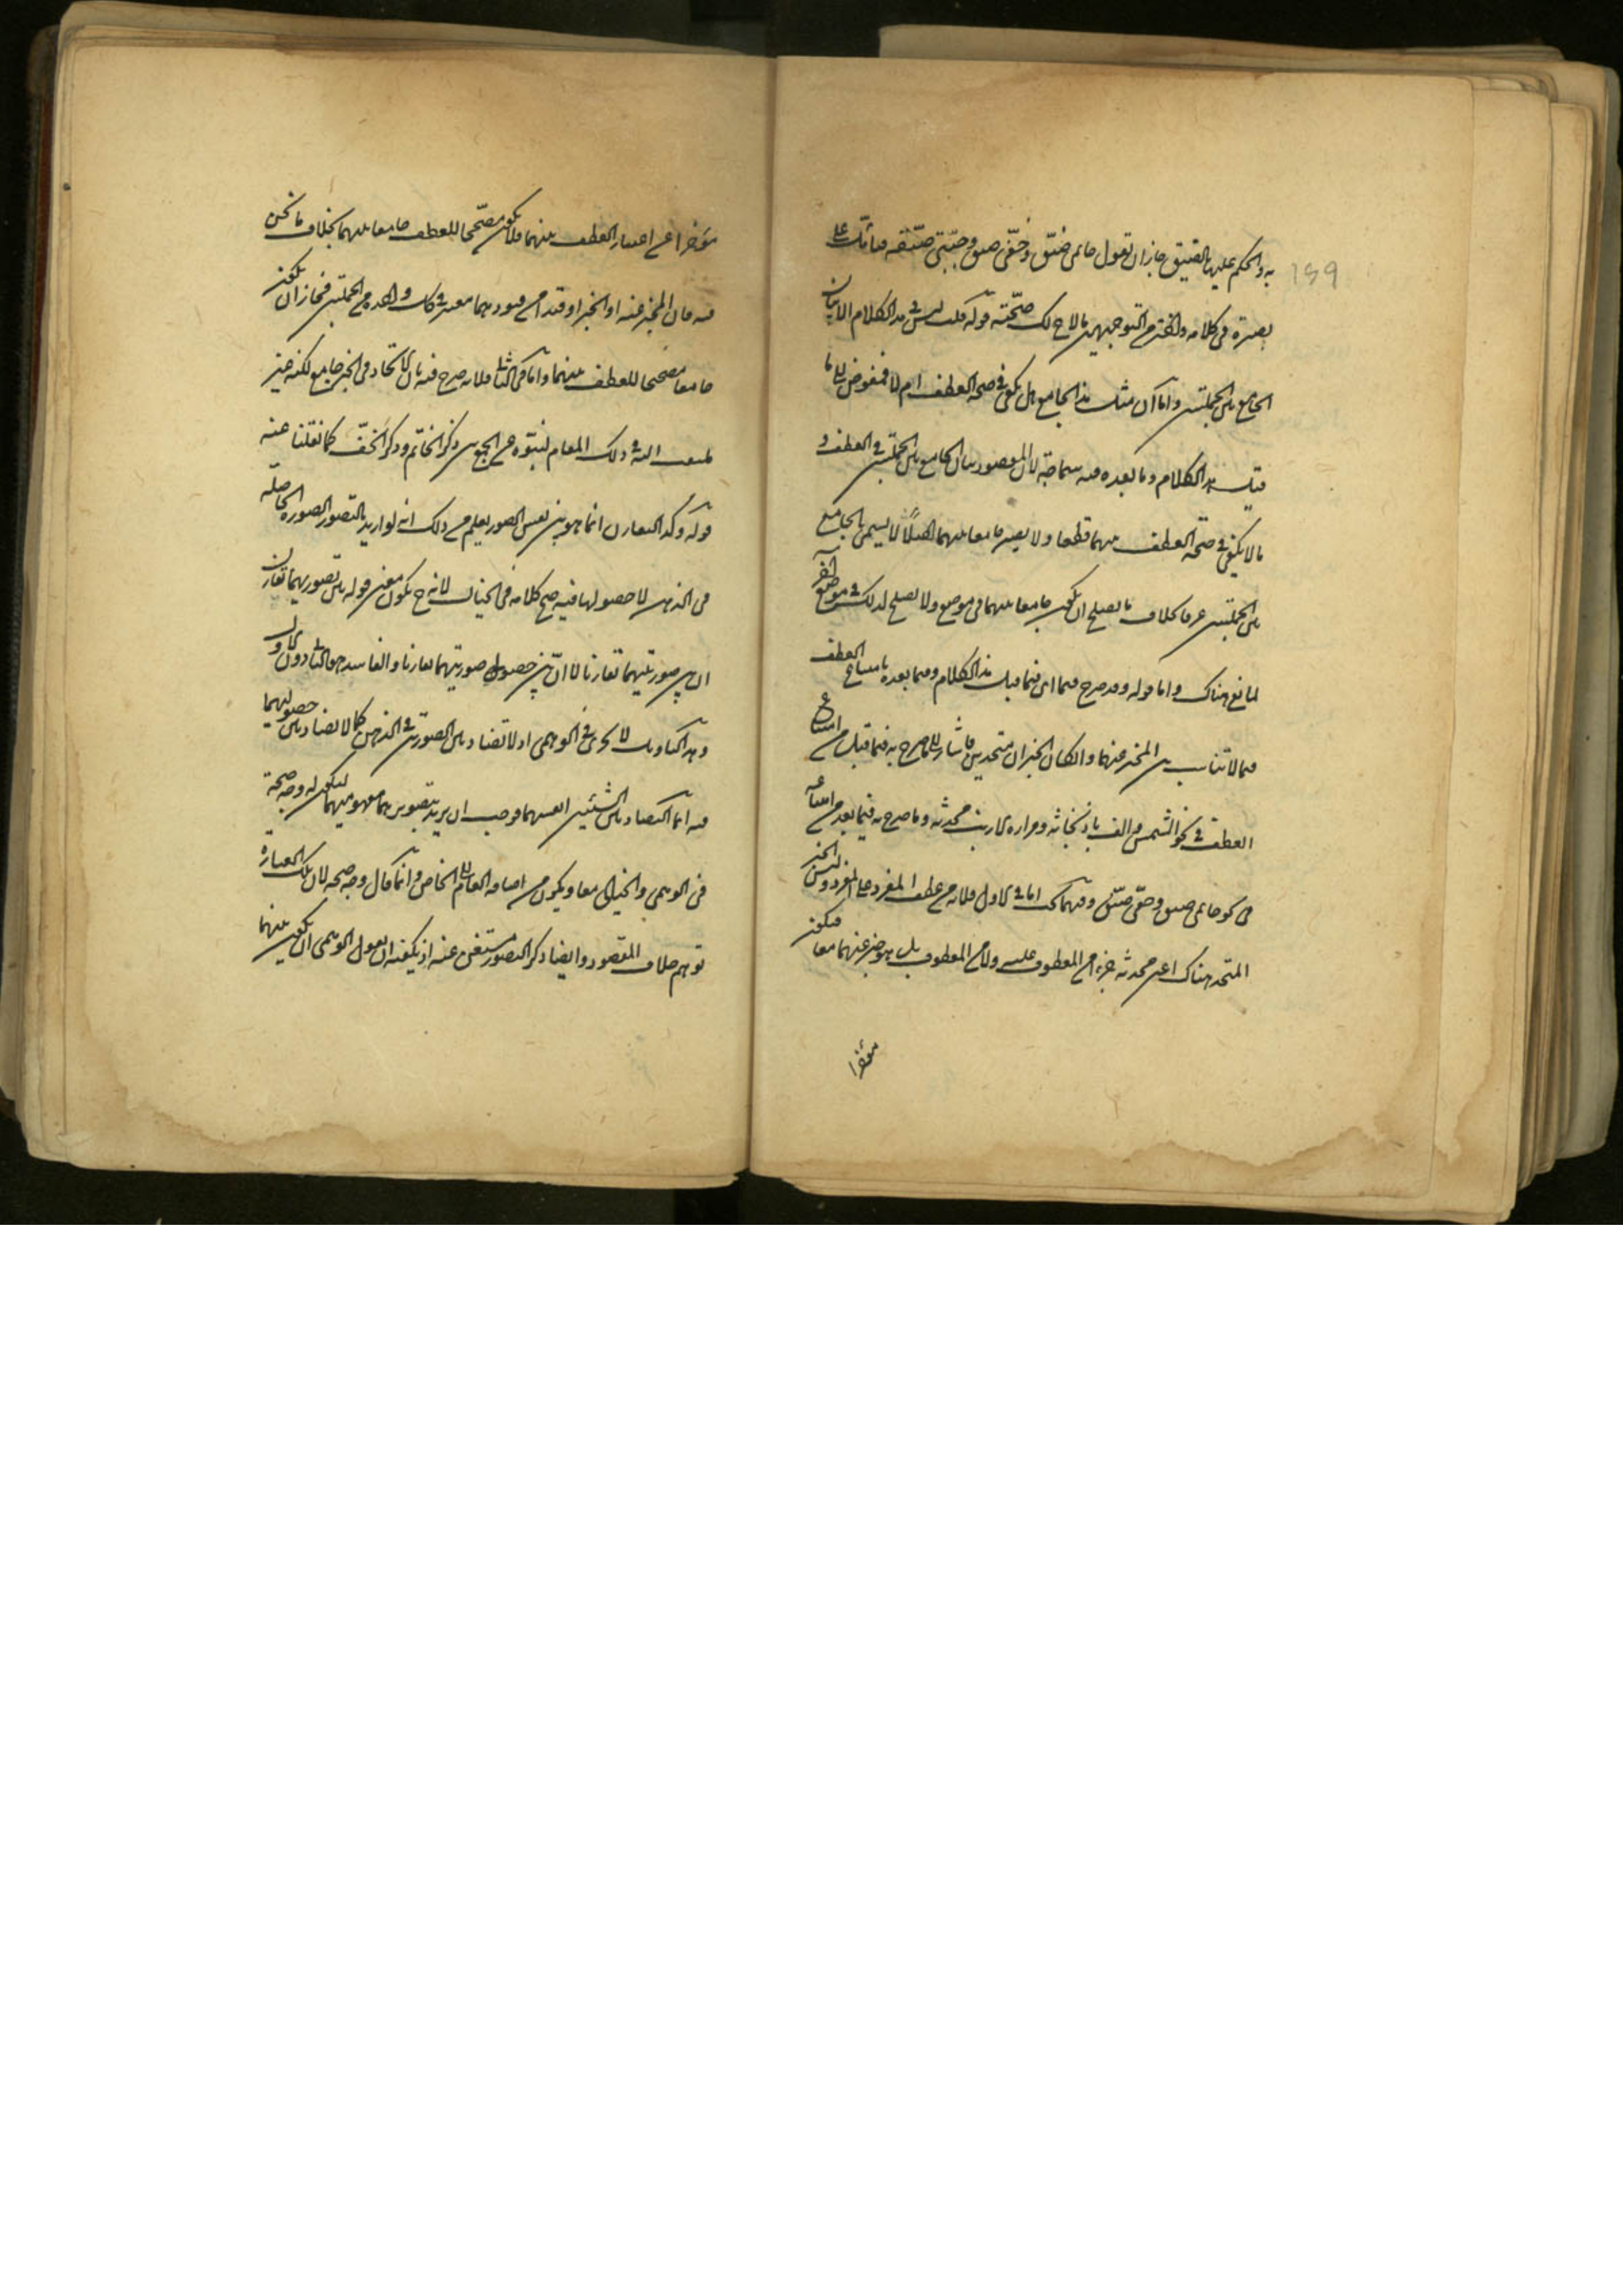 159
به والحكم عليها بالضيق جاز ان تقول خاتمى ضيق وخفى ضيق وجبتى ضيقه فتأمل على
بصيرة فى كلامه واختر من التوجيهين ما لاح لك صحته قوله قلت ليس فى هذا الكلام الا بيان
الجامع بين الجملتين واما ان مثل هذا الجامع هل يكفى فى صحة العطف ام لا فمفوض الى ما
قبل هذا الكلام وما بعده فيه سماجة لان المقصود بيان الجامع بين الجملتين فى العطف و
ما لا يكفى فى صحة العطف بينهما قطعا ولا يصير جامعا بينهما اصلا لا يسمى بالجامع
بين الجملتين عرفا بخلاف ما يصلح ان يكون جامعا بينهما فى موضع ولا يصلح لذلك فى موضع آخر
لمانع هناك واما قوله وقد صرح فيهما اى فيما قبل هذا الكلام وفيما بعده بامتناع العطف
فيما لا تناسب بين المخبر عنهما وان كان الخبران متحدين فاشار الى ما صرح به فيما قبل من امتناع
العطف فى نحو الشمس والف باذنجانة ومرارة الارنب محدثة وما صرح به فيما بعد من امتناعه
فى نحو خاتمى ضيق وخفى ضيق وفيهما بحث اما فى الاول فلانه من عطف المفرد على المفرد وليس الخبر
المتحد هناك اعنى محدثة جزءا من المعطوف عليه ولا من المعطوف بل هو خبر عنهما معا فيكون
مؤخرا
مؤخرا عن اعتبار العطف بينهما فلا يكون مصححا للعطف جامعا بينهما بخلاف ما نحن
فيه فان المخبر عنه او الخبر او قيدا من قيودهما معتبر فى كل واحدة من الجملتين فجاز ان يكون
جامعا مصححا للعطف بينهما واما فى الثانى فلانه صرح فيه بان الاتحاد فى الخبر جامع لكنه غير
ملتفت اليه فى ذلك المقام لنبوه عن الجمع بين ذكر الخاتم وذكر الخف كما نقلنا عنه
قوله وكذا التقارن انما هو بين نفس الصور يعلم من ذلك انه لو اريد بالتصور الصورة الحاصلة
فى الذهن لا حصولها فيه صح كلامه فى الخيال لانه ح يكون معنى قوله بين تصوريهما تقارن
ان بين صورتيهما تقارنا لا ان بين حصول صورتيهما تقارنا والفاسد هو الثانى دون الاول
وهذا التأويل لا يجرى فى الوهمى اذ لا تضاد بين الصورتين فى الذهن كما لا تضاد بين حصوليهما
فيه انما التضاد بين الشيئين انفسهما فوجب ان يريد بتصورهما مفهوميهما ليكون له وجه صحة
فى الوهمى والخيالى معا ويكون من اضافة العام الى الخاص وانما قال وجه صحة لان تلك العبارة
توهم خلاف المقصود وايضا ذكر التصور مستغنى عنه اذ يكفيه ان يقول الوهمى ان يكون بينهما